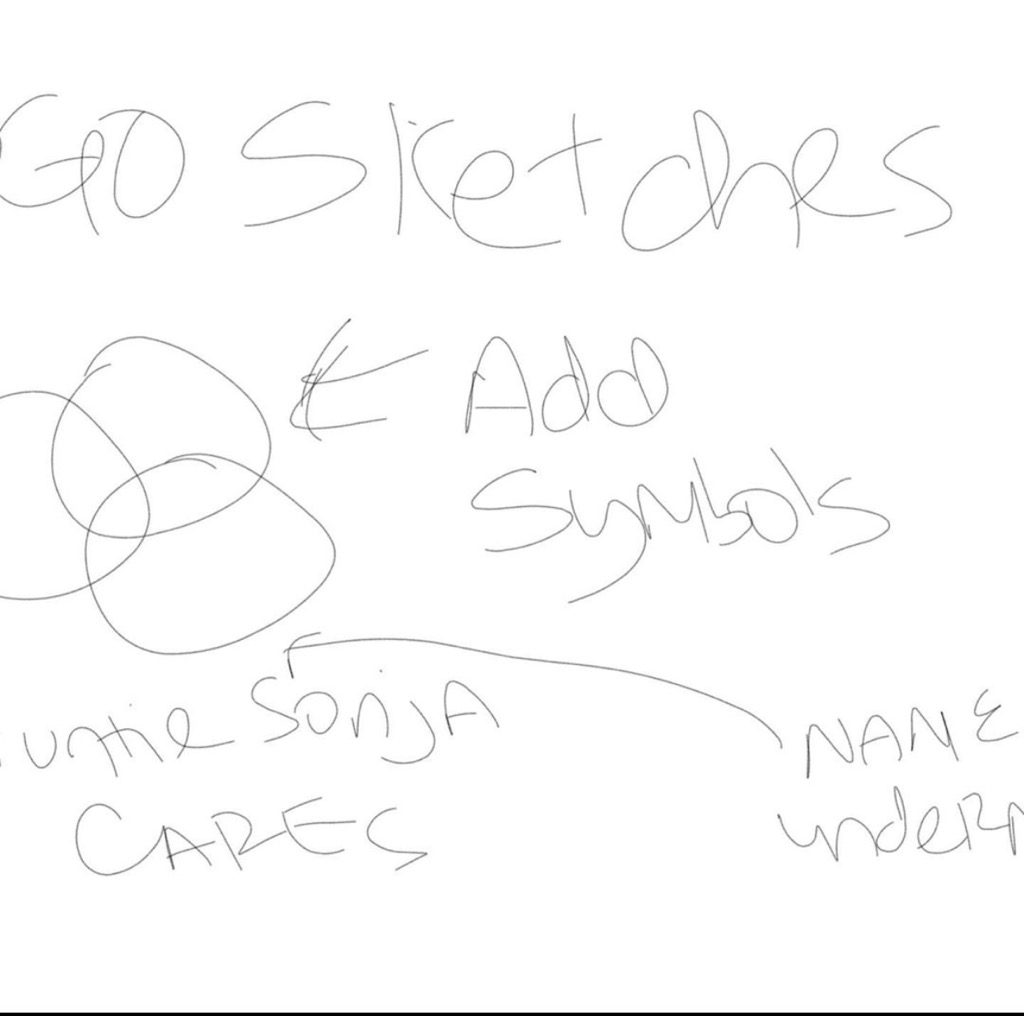 GO Sketches
Add
Symbols
untie SonjA
CARES
NAME